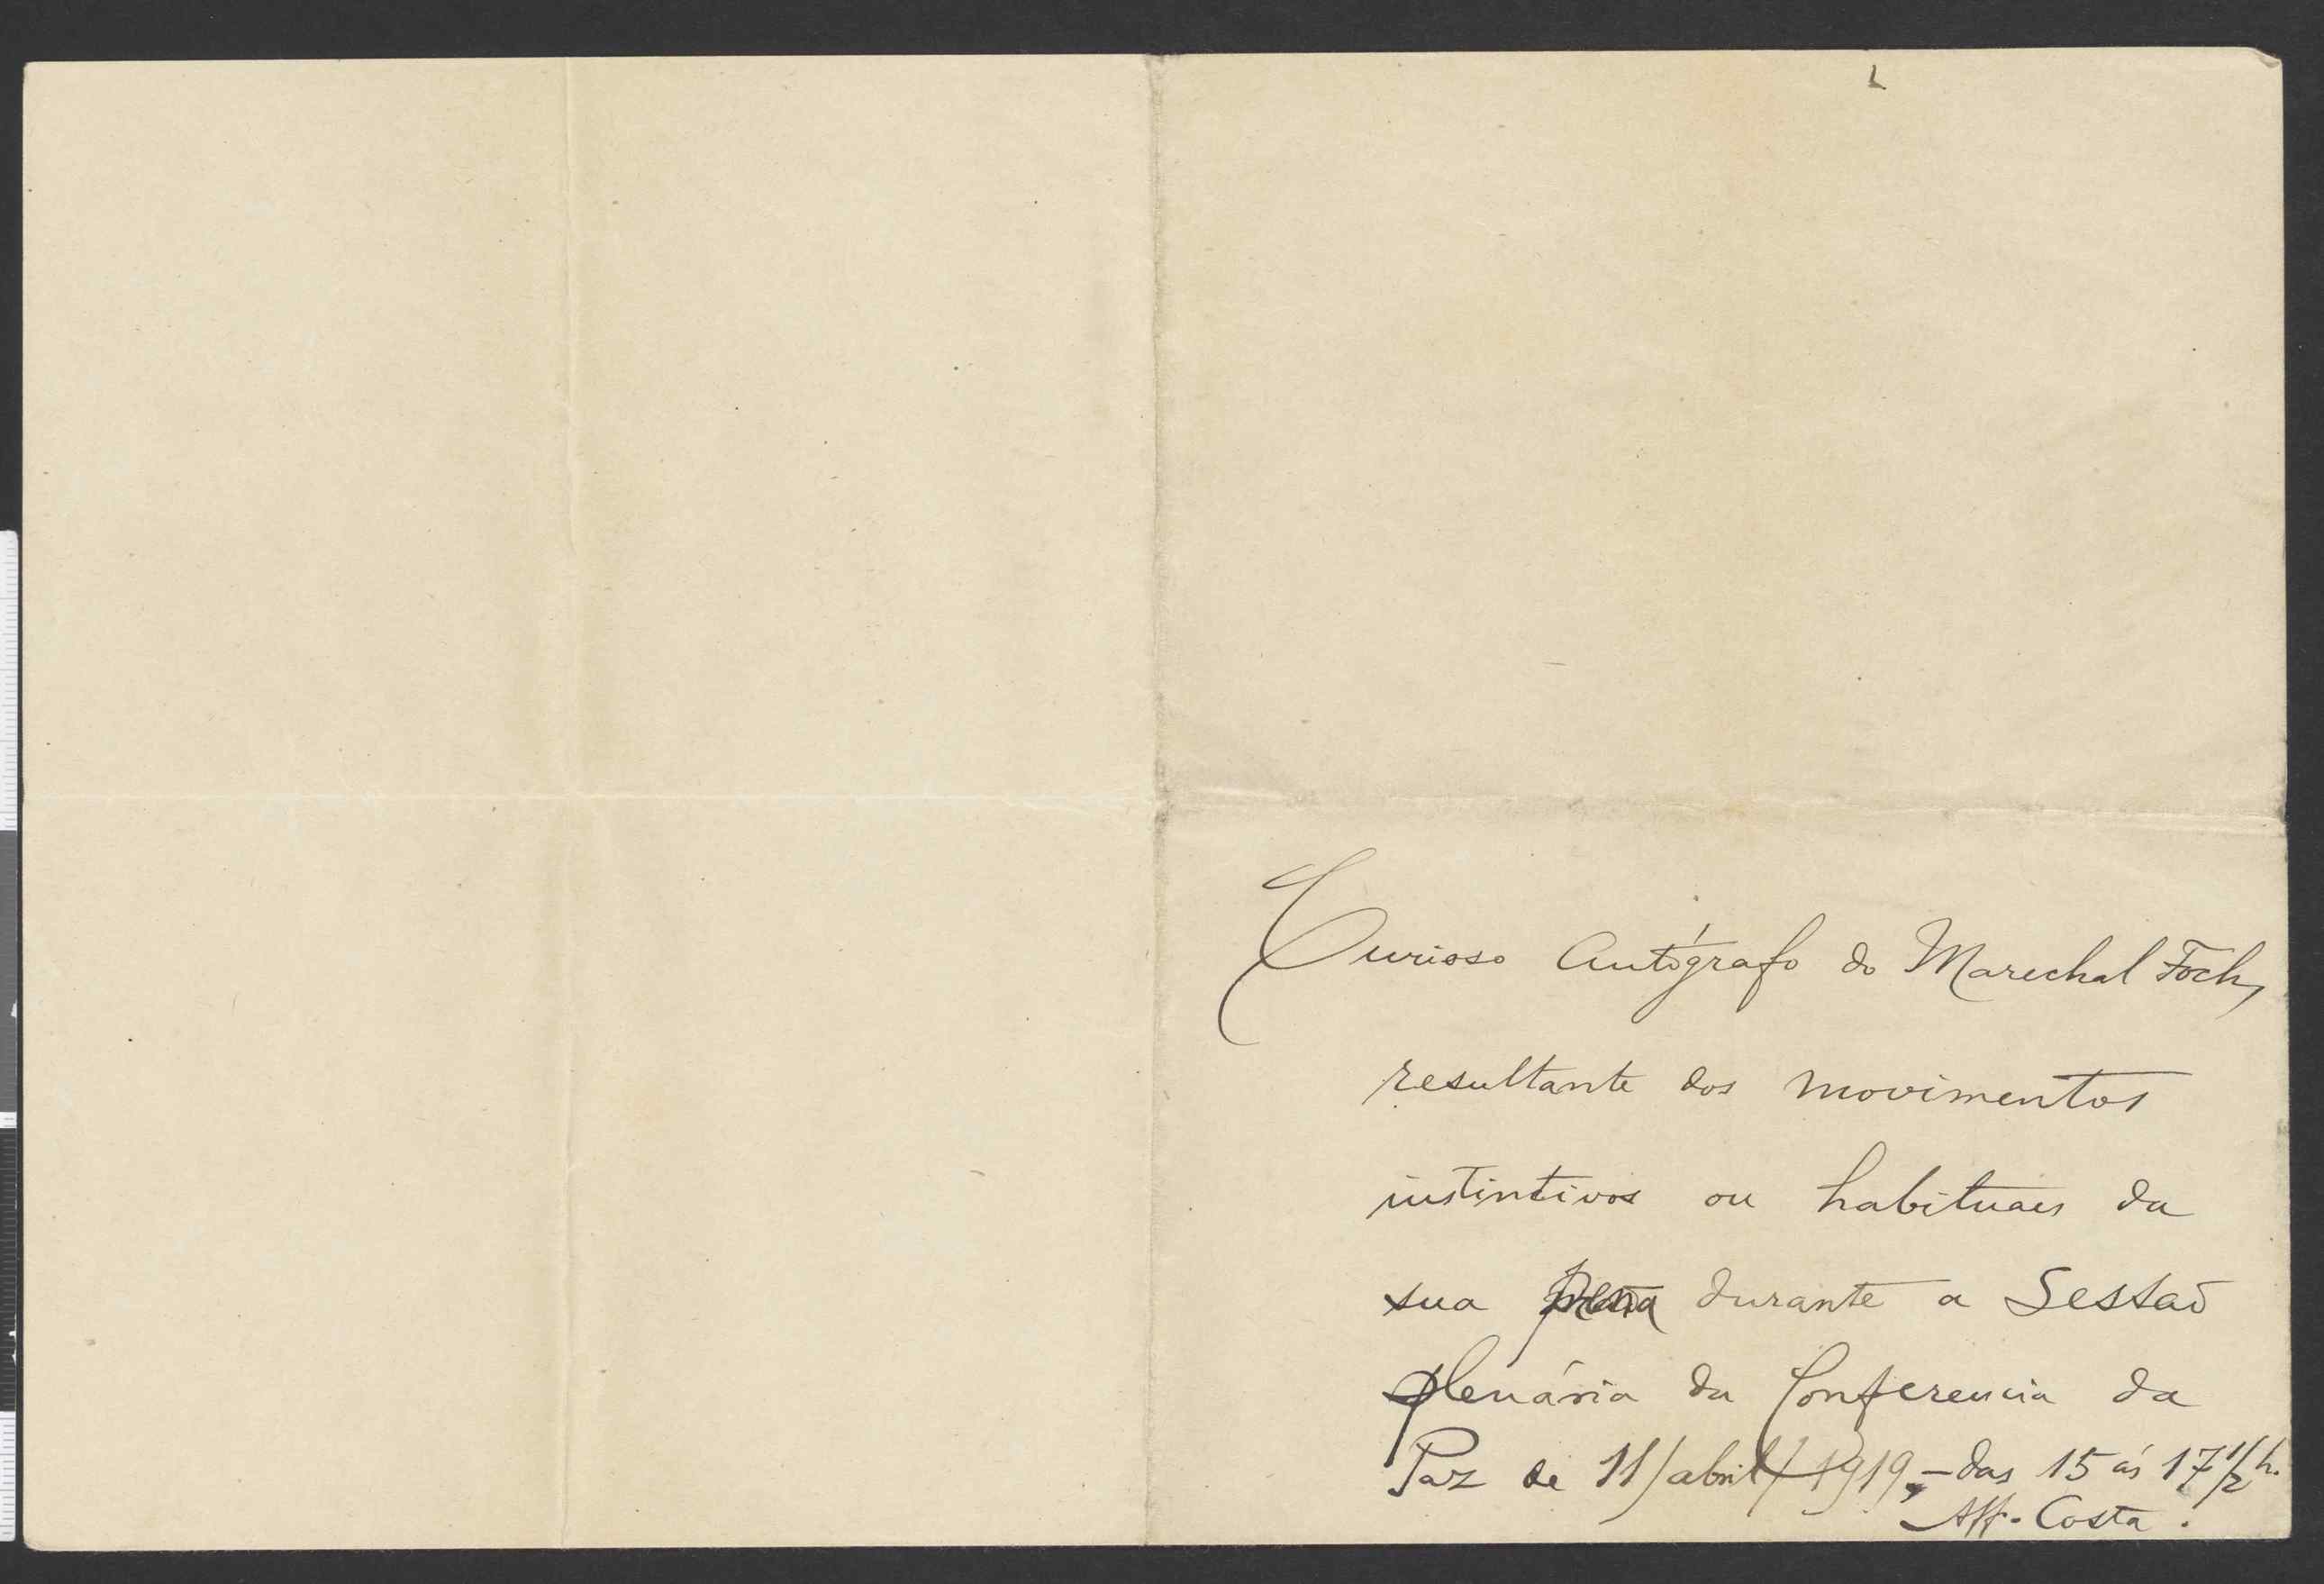 Curioso Autógrafo do Marechal Foch,
resultante dos movimentos
instintivos ou habituaes da
sua pena durante a Sessaõ
plenária da Conferencia da
Paz de 11/abril/1919, – das 15 ás 17 1/2 h.
Aff. Costa.